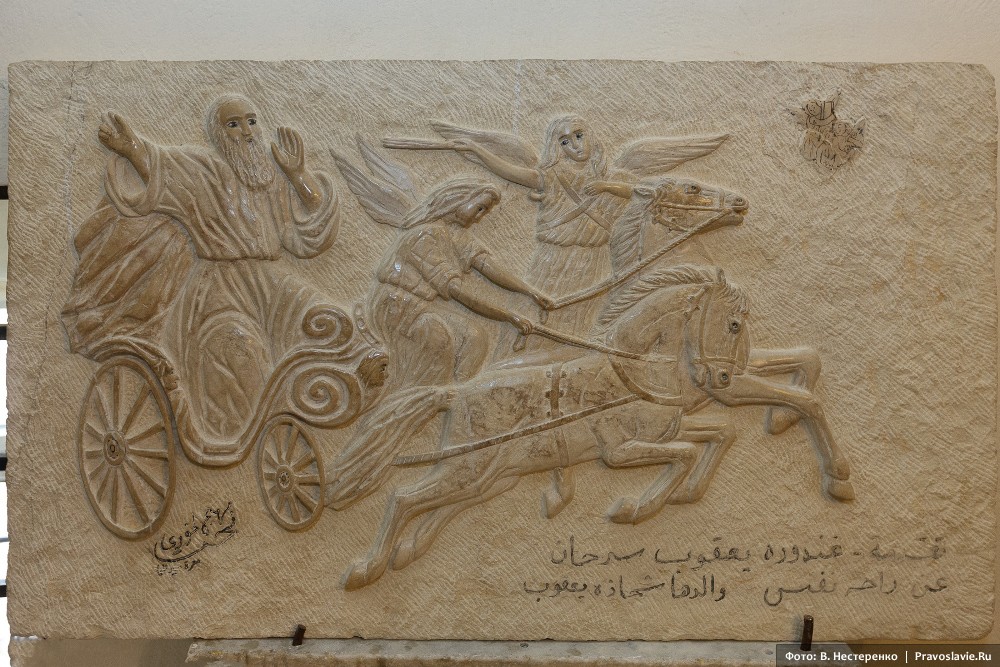 تقدمه - غندوره يعقوب سرحان
عن راحة نفس والدها شحاذه يعقوب
الخوري
Фото: В. Нестеренко | Pravoslavie.Ru